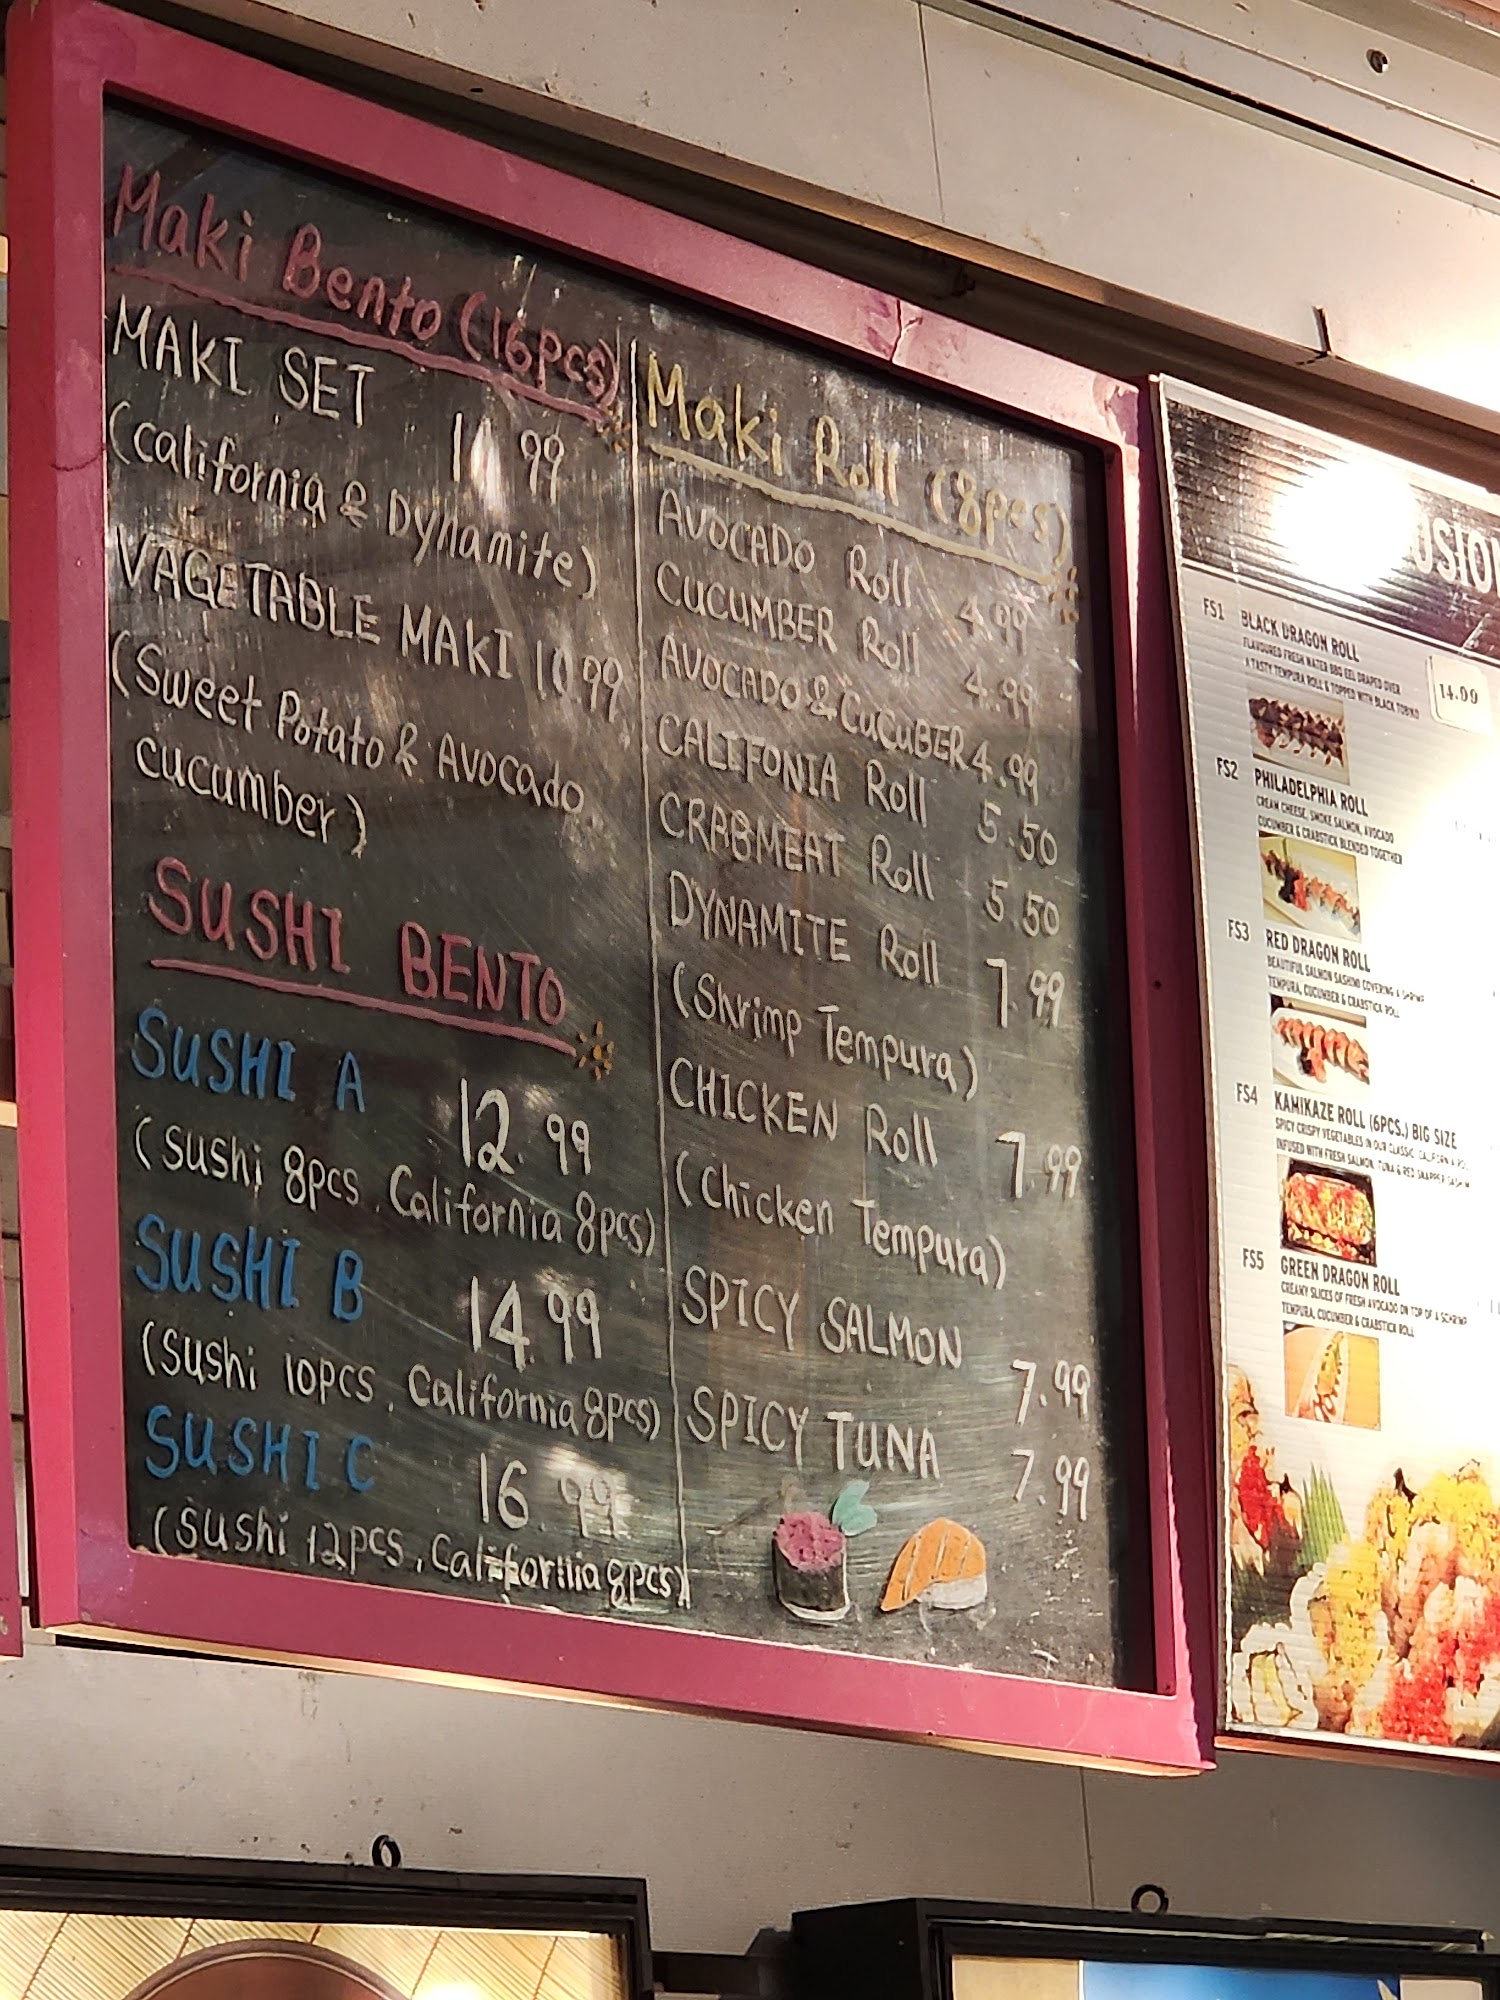 Maki Bento (16pcs)
MAKI SET
99
(california & Dynamite)
VAGETABLE MAKI 10.99
(Sweet Potato & Avocado
cucumber)
SUSHI BENTO
SUSHI A
12.99
(sushi 8pcs. California 8pcs)
SUSHI B
14.99
(sushi 10pcs. California 8pcs)
SUSHI C
16.99
(sushi 12pcs. California 8pcs)
Maki Roll (8pcs)
AVOCADO Roll 4.99
CUCUMBER Roll 4.99
AVOCADO&CUCUBER 4.99
CALIFONIA Roll 5.50
CRABMEAT Roll 5.50
DYNAMITE Roll 7.99
(Shrimp Tempura)
CHICKEN Roll 7.99
(Chicken Tempura)
SPICY SALMON 7.99
SPICY TUNA 7.99
FS1 BLACK DRAGON ROLL
FLAVOURED FRESH WATER BBQ EEL DRAPED OVER
A TASTY TEMPURA ROLL & TOPPED WITH BLACK TOBIKO
14.99
FS2 PHILADELPHIA ROLL
CREAM CHEESE, SMOKE SALMON, AVOCADO
CUCUMBER & CRABSTICK BLENDED TOGETHER
FS3 RED DRAGON ROLL
BEAUTIFUL SALMON SASHIMI COVERING A SHRIMP
TEMPURA, CUCUMBER & CRABSTICK ROLL
FS4 KAMIKAZE ROLL (6PCS.) BIG SIZE
SPICY CRISPY VEGETABLES IN OUR CLASSIC
INFUSED WITH FRESH SALMON, TUNA & RED SNAPPER
FS5 GREEN DRAGON ROLL
CREAMY SLICES OF FRESH AVOCADO ON TOP OF A SCHRIMP
TEMPURA, CUCUMBER & CRABSTICK ROLL